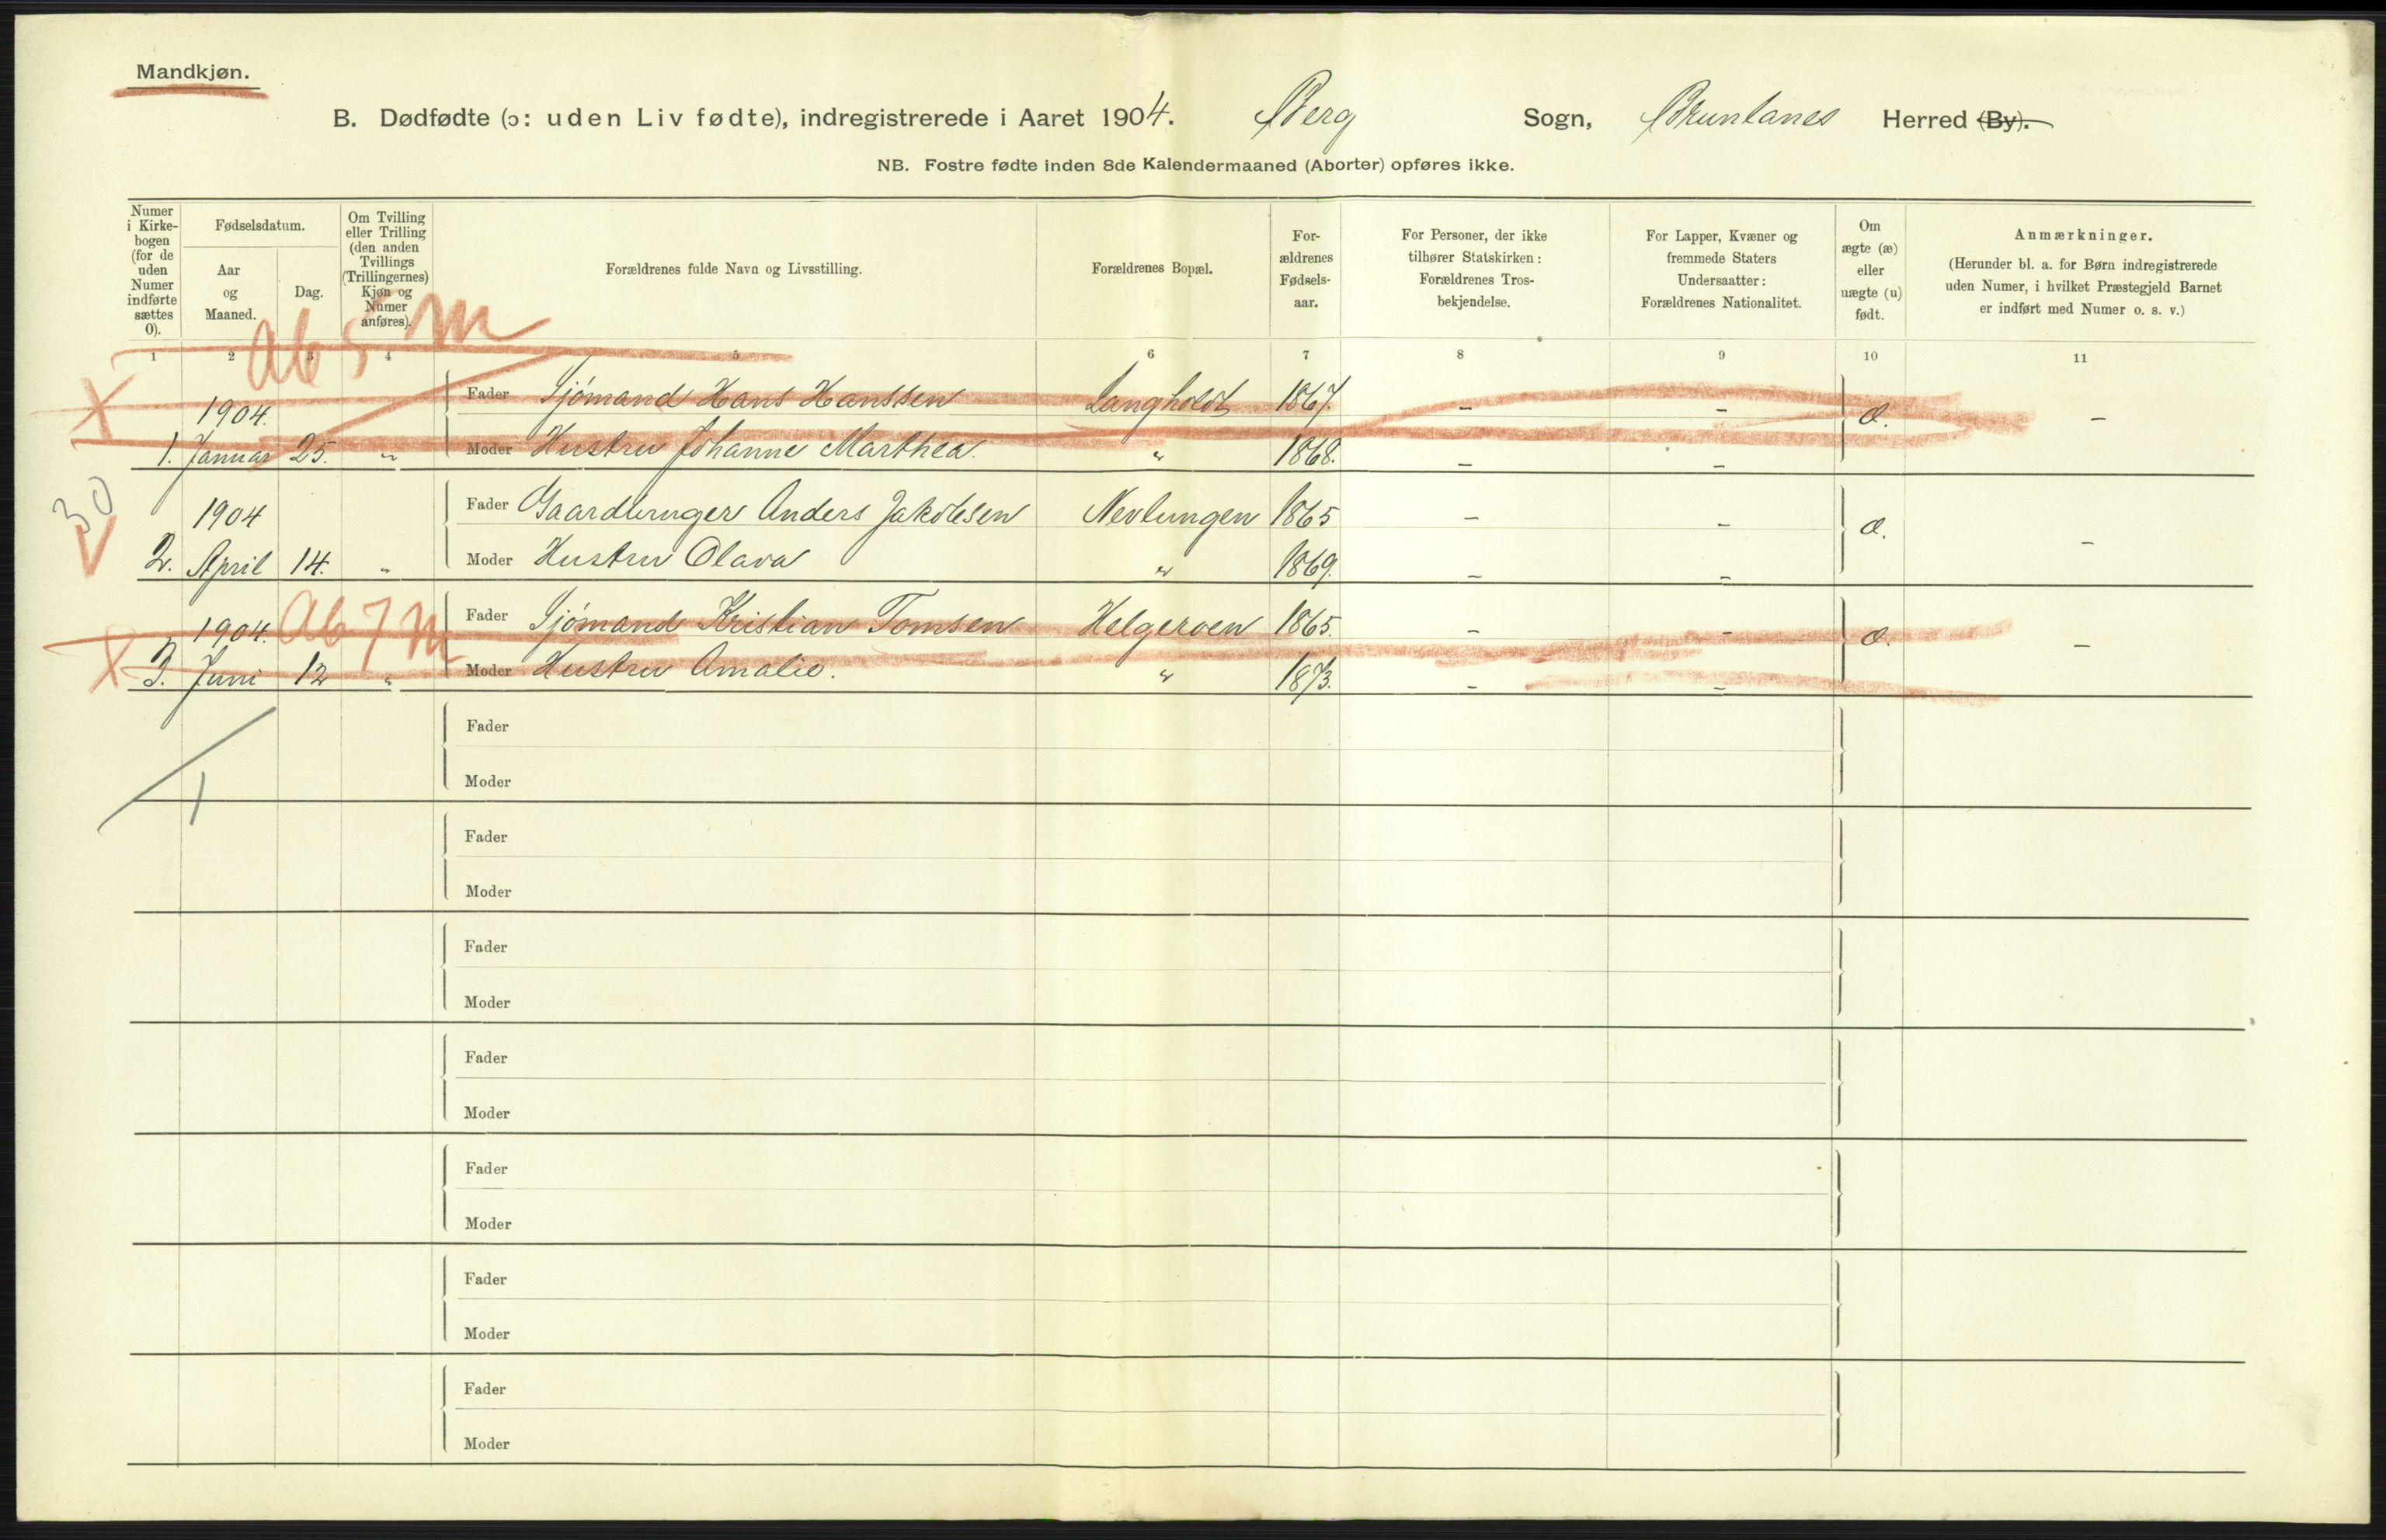 Mandkjøn.
B. Dødfødte (ɔ: uden Liv fødte), indregistrerede i Aaret 1904. Berg Sogn, Brunlanes Herred (By).
NB. Fostre fødte inden 8de Kalendermaaned (Aborter) opføres ikke.
Numer i Kirke-bogen (for de uden Numer indførte sættes 0).
Fødselsdatum.
Aar og Maaned.
Dag.
Om Tvilling eller Trilling (den anden Tvillings (Trillingernes) Kjøn og Numer anføres).
Forældrenes fulde Navn og Livsstilling.
Forældrenes Bopæl.
For-ældrenes Fødsels-aar.
For Personer, der ikke tilhører Statskirken: Forældrenes Tros-bekjendelse.
For Lapper, Kvæner og fremmede Staters Undersaatter: Forældrenes Nationalitet.
Om ægte (æ) eller uægte (u) født.
Anmærkninger.
(Herunder bl. a. for Børn indregistrerede uden Numer, i hvilket Præstegjeld Barnet er indført med Numer o. s. v.)
1 2 3 4 5 6 7 8 9 10 11
Ab 5 m
X 1904. Fader Sjømand Hans Hanssen Langholdt 1867. – – æ. –
1. Januar 25. " Moder Hustru Johanne Marthea. " 1868. – –
30
1904 Fader Gaardbruger Anders Jakobsen Nevlungen 1865 – – æ. –
2. April 14. " Moder Hustru Olava " 1869. – –
Ab 7 m
1904. Fader Sjømand Kristian Tomsen Helgeroen 1865. – – æ. –
X 3. Juni 12 " Moder Hustru Amalie. " 1873. – –
Fader
Moder
1
Fader
Moder
Fader
Moder
Fader
Moder
Fader
Moder
Fader
Moder
Fader
Moder